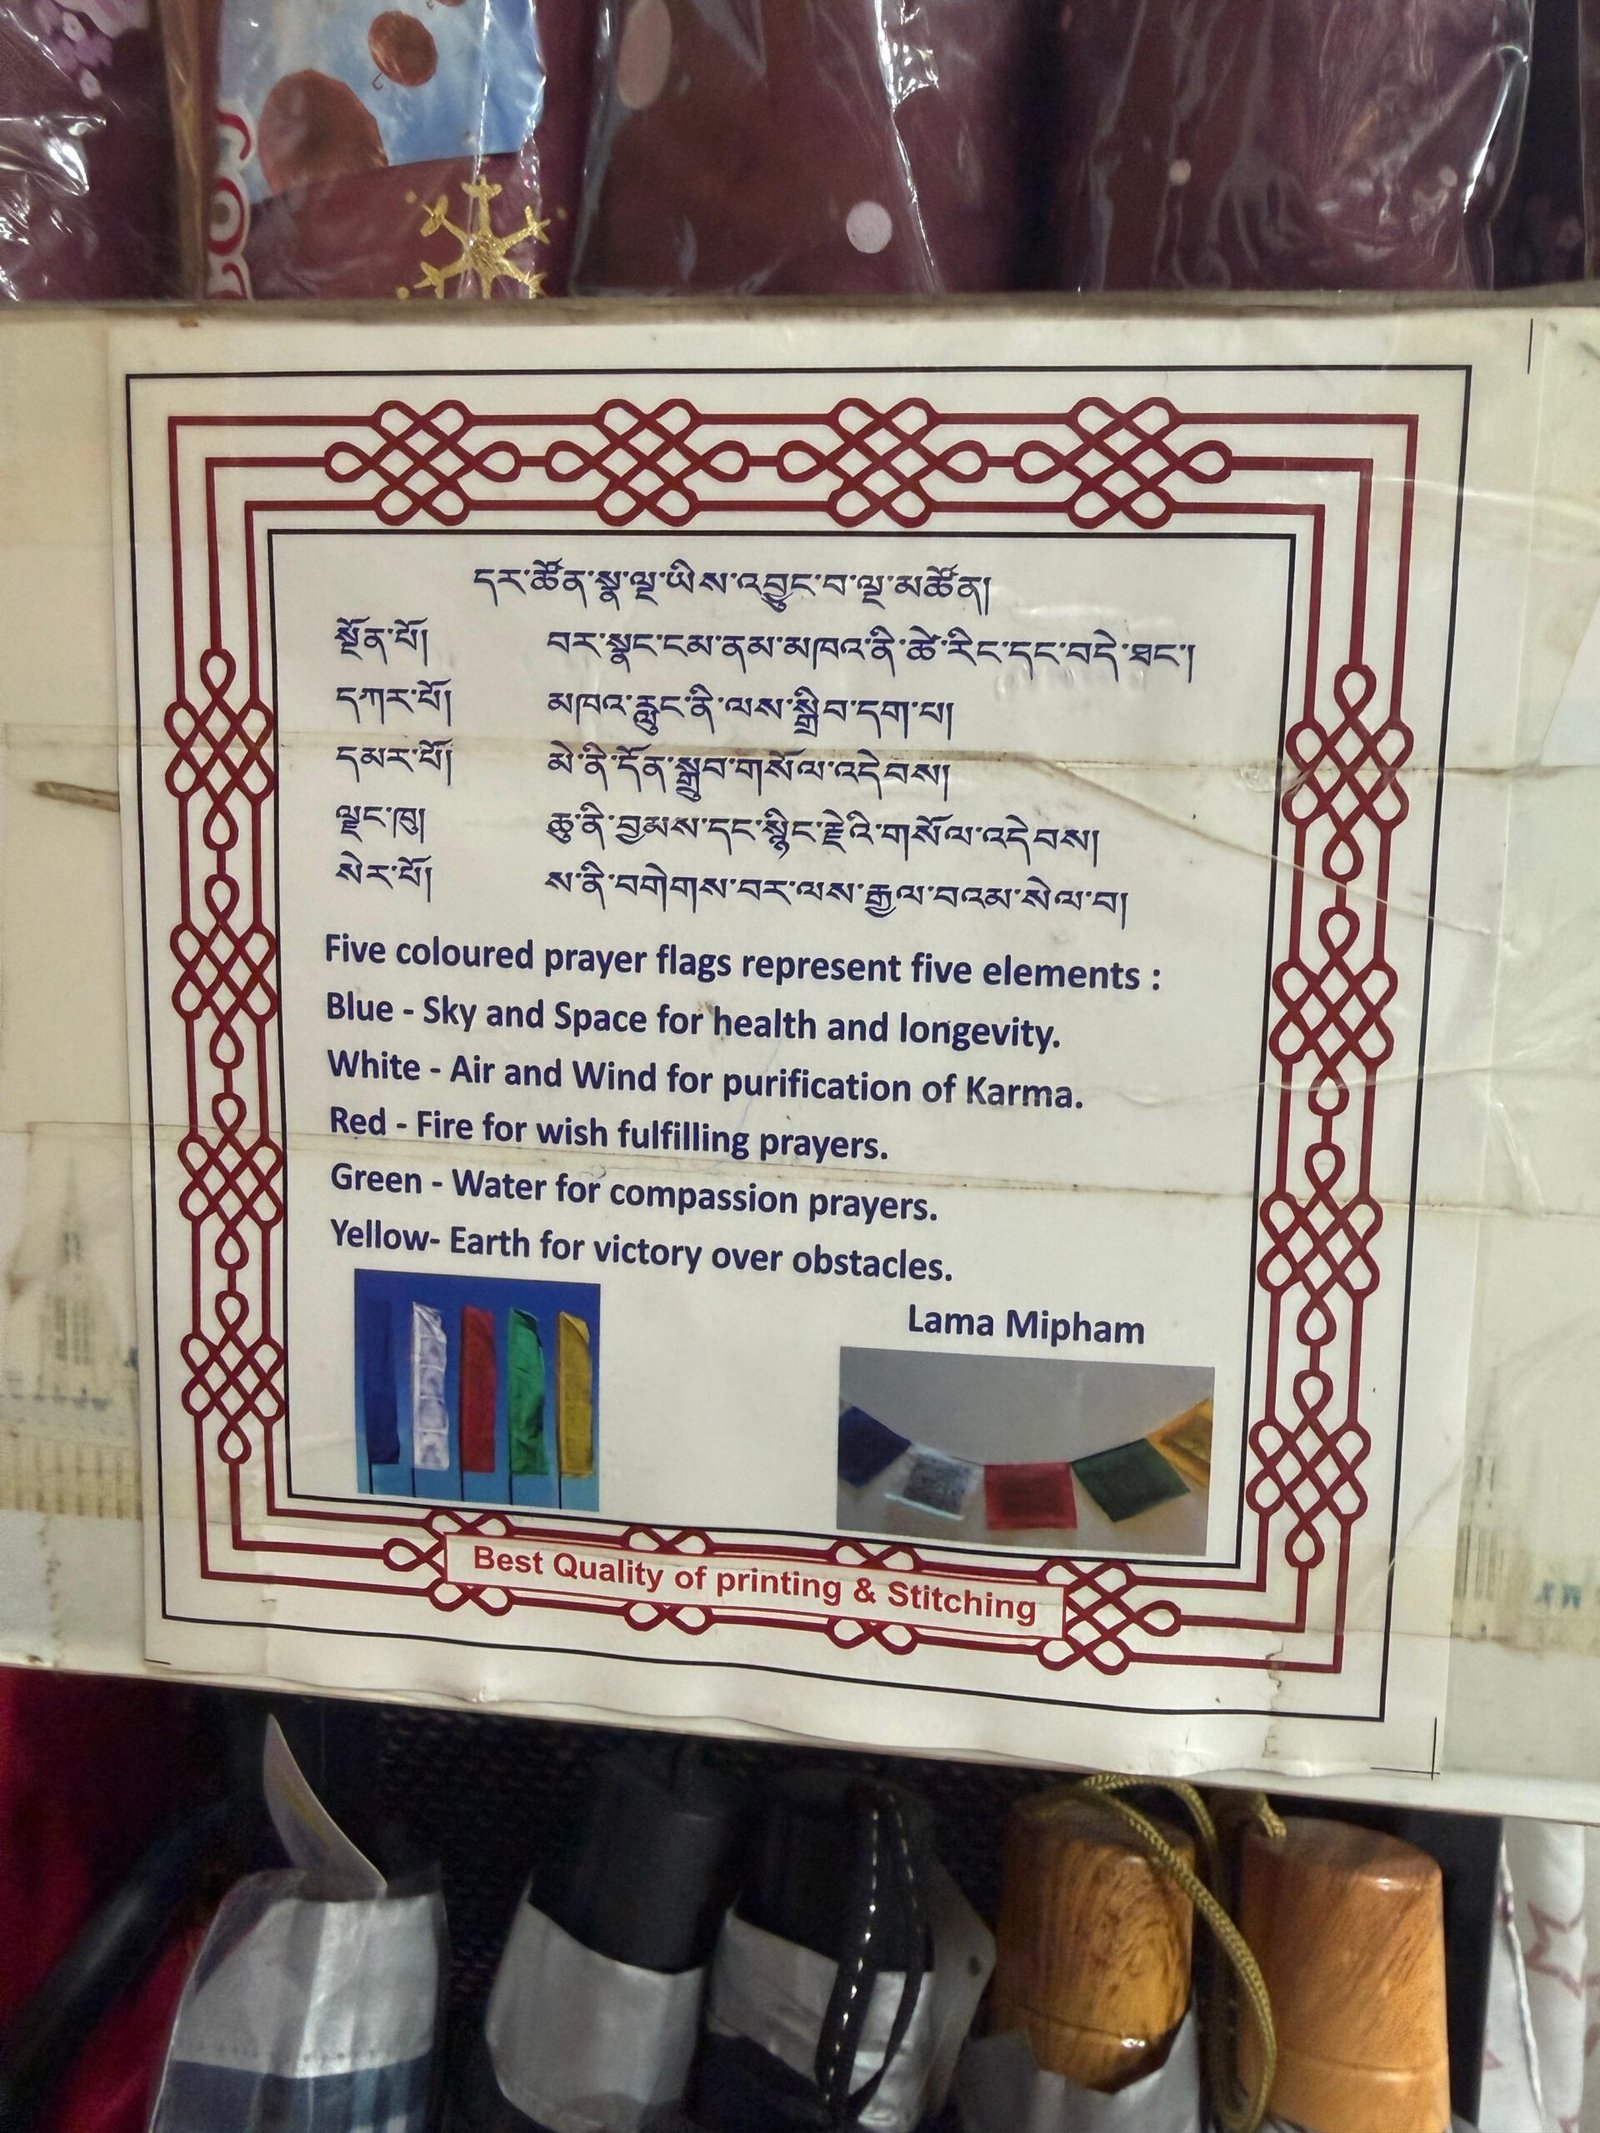 དར་ཚོན་སྣ་ལྔ་ཡིས་འབྱུང་བ་ལྔ་མཚོན།
སྔོན་པོ། བར་སྣང་ངམ་ནམ་མཁའ་ནི་ཚེ་རིང་དང་བདེ་ཐང་།
དཀར་པོ། མཁའ་རླུང་ནི་ལས་སྒྲིབ་དག་པ།
དམར་པོ། མེ་ནི་དོན་སྒྲུབ་གསོལ་འདེབས།
ལྗང་ཁུ། ཆུ་ནི་བྱམས་དང་སྙིང་རྗེའི་གསོལ་འདེབས།
སེར་པོ། ས་ནི་བགེགས་བར་ལས་རྒྱལ་བའམ་སེལ་བ།
Five coloured prayer flags represent five elements :
Blue - Sky and Space for health and longevity.
White - Air and Wind for purification of Karma.
Red - Fire for wish fulfilling prayers.
Green - Water for compassion prayers.
Yellow- Earth for victory over obstacles.
Lama Mipham
Best Quality of printing & Stitching